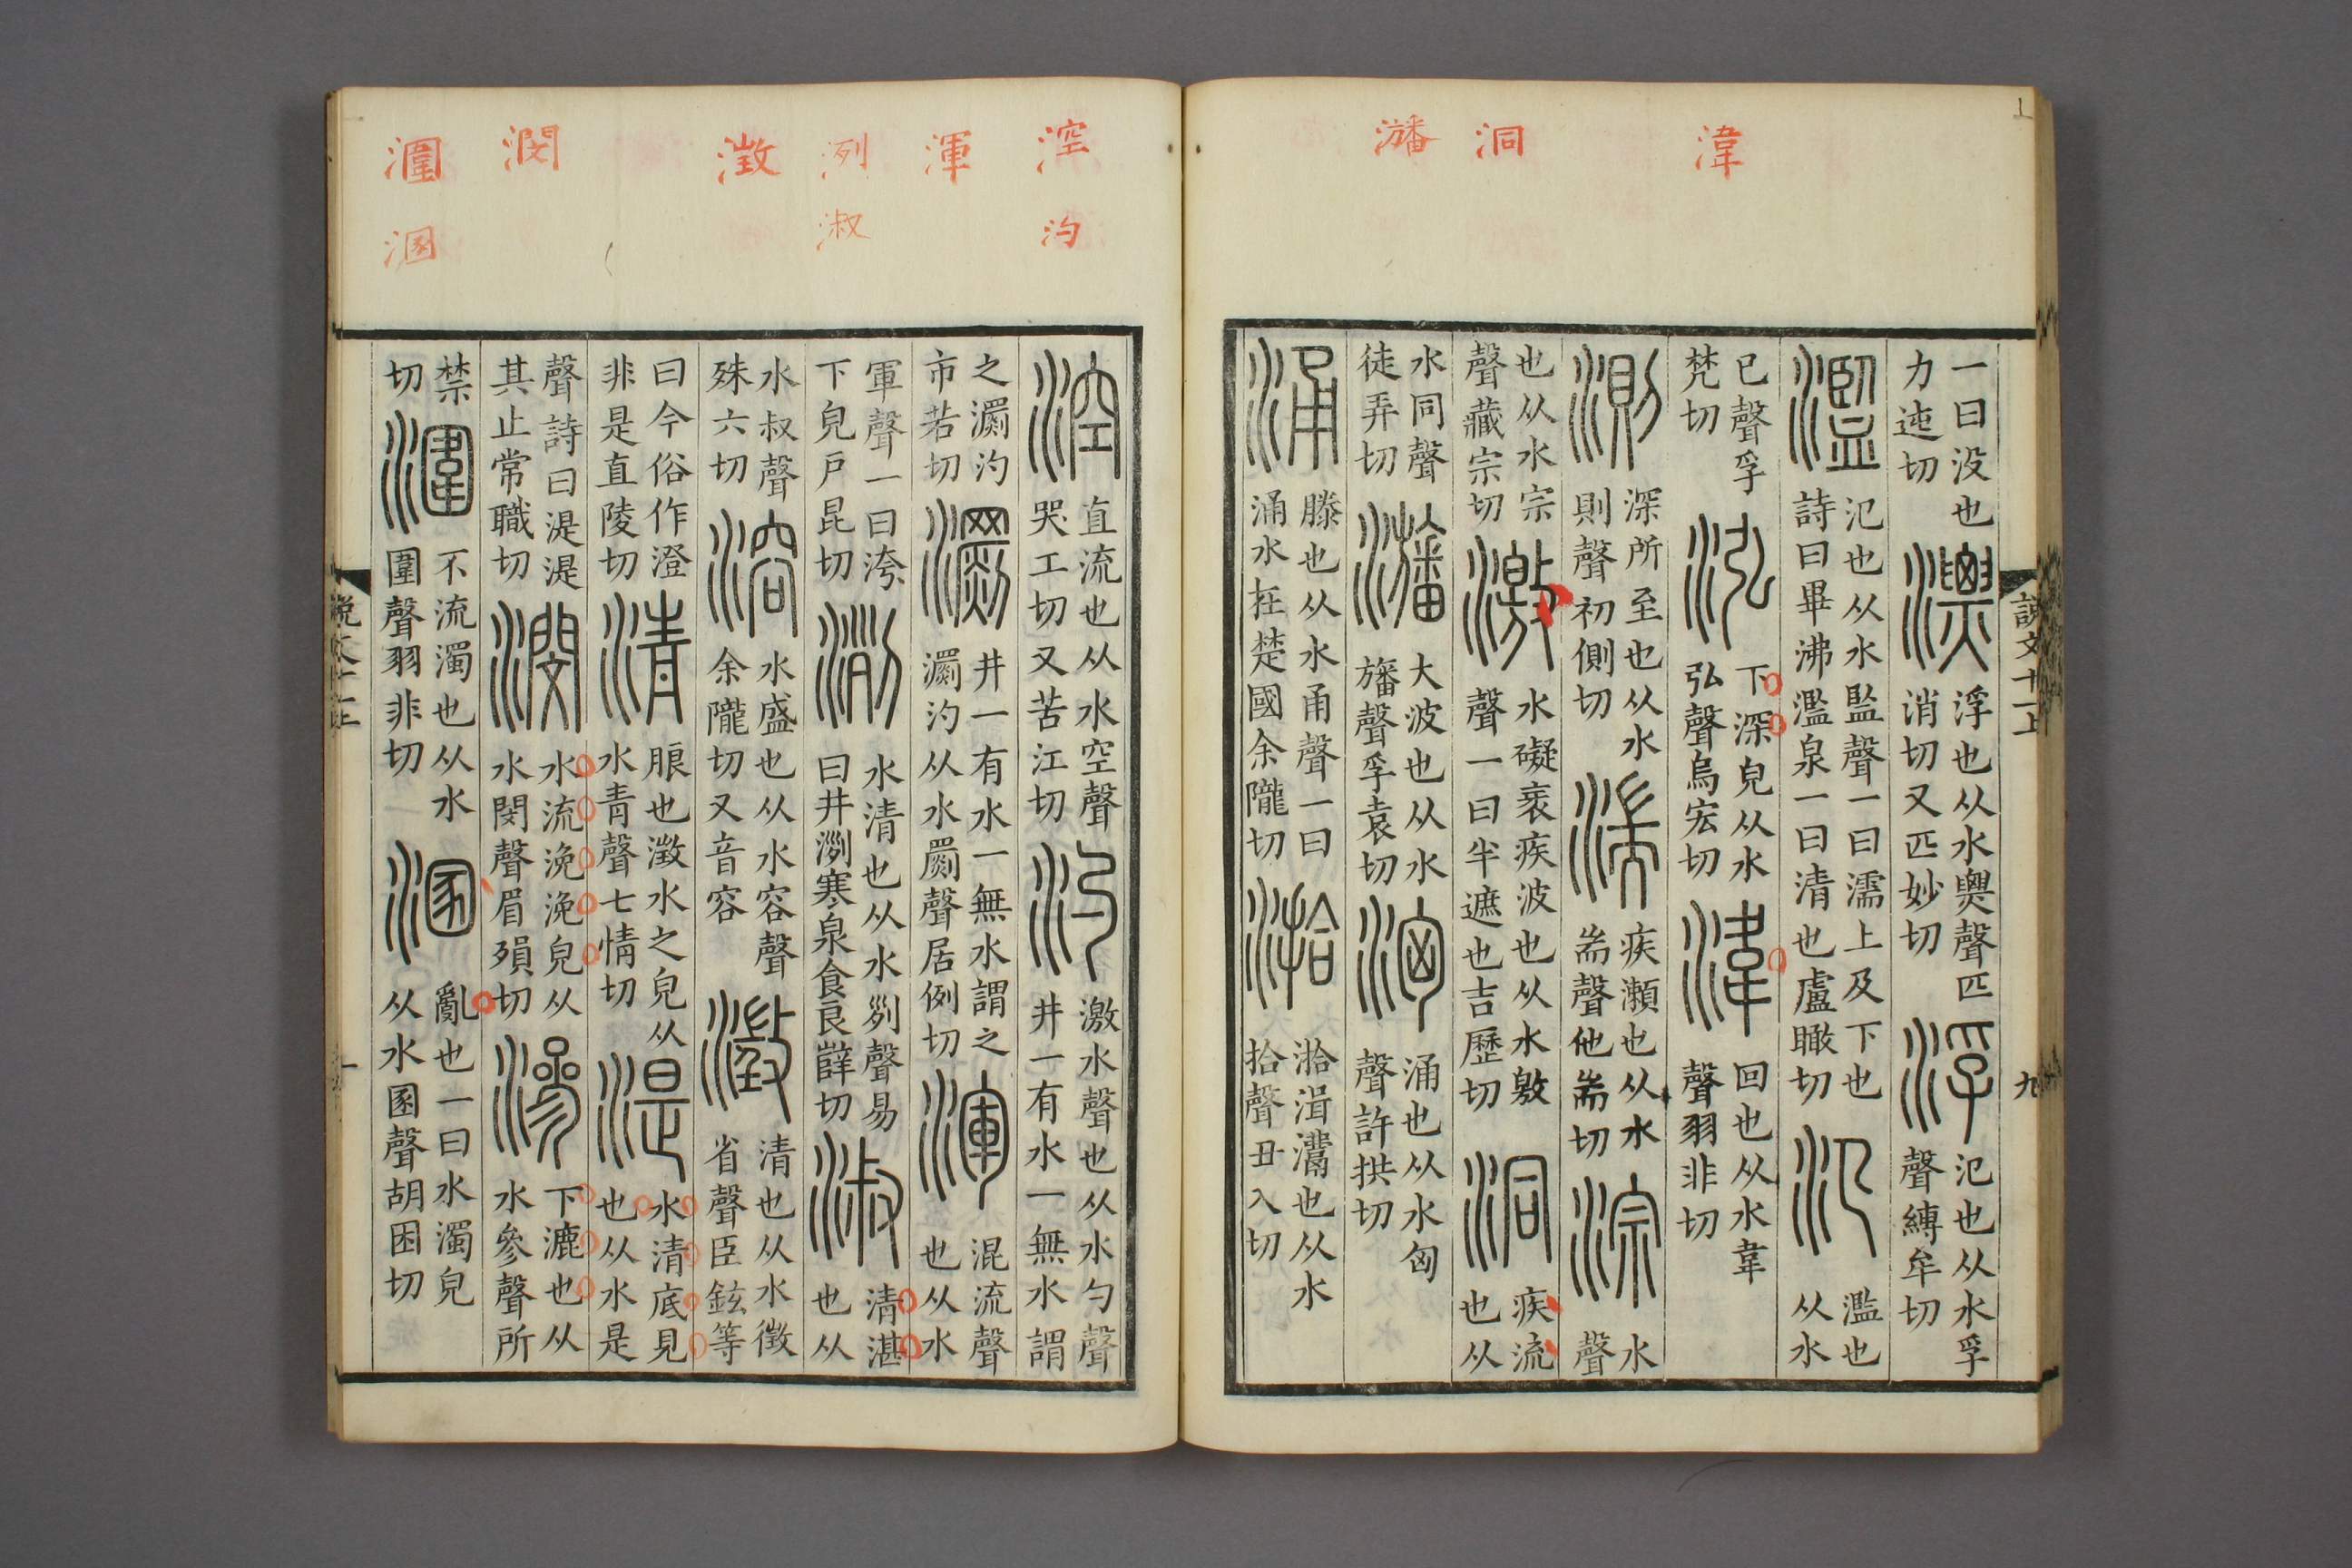 湋
洞
㶗
說文十一上
九
一曰没也力迍切 漂 浮也从水㷠聲匹消切又匹妙切 浮 氾也从水孚聲縛牟切
濫 氾也从水監聲一曰濡上及下也詩曰畢沸濫泉一曰清也盧瞰切 氾 濫也从水
㔾聲孚梵切 泓 下深皃从水弘聲烏宏切 湋 回也从水韋聲羽非切
測 深所至也从水則聲初側切 湍 疾瀨也从水耑聲他耑切 淙 水聲
也从水宗聲藏宗切 激 水礙衺疾波也从水敫聲一曰半遮也吉歷切 洞 疾流也从
水同聲徒弄切 㶗 大波也从水旛聲孚袁切 洶 涌也从水匈聲許拱切
涌 滕也从水甬聲一曰涌水在楚國余隴切 湁 湁湒鬵也从水拾聲丑入切
涳
汋
渾
洌
淑
澂
潣
潿
溷
涳 直流也从水空聲哭工切又苦江切 汋 激水聲也从水勺聲井一有水一無水謂
之瀱汋市若切 瀱 井一有水一無水謂之瀱汋从水罽聲居例切 渾 混流聲也从水
軍聲一曰洿下皃戶昆切 洌 水清也从水𠛱聲易曰井洌寒泉食良薛切 淑 清湛也从
水叔聲殊六切 溶 水盛也从水容聲余隴切又音容 澂 清也从水徵省聲臣鉉等
曰今俗作澄非是直陵切 清 朖也澂水之皃从水青聲七情切 湜 水清底見也从水是
聲詩曰湜湜其止常職切 潣 水流浼浼皃从水閔聲眉殞切 滲 下漉也从水參聲所
禁切 潿 不流濁也从水圍聲羽非切 溷 亂也一曰水濁皃从水圂聲胡困切